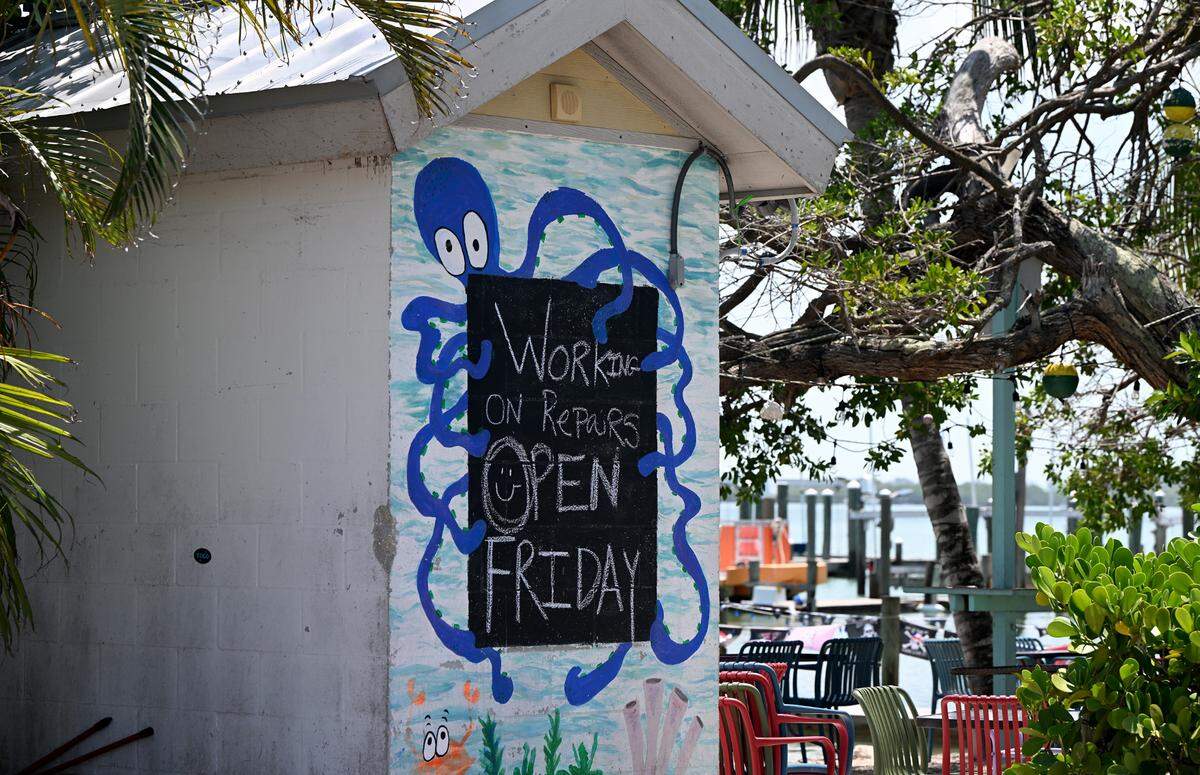 Working
on Repairs
OPEN
FRIDAY